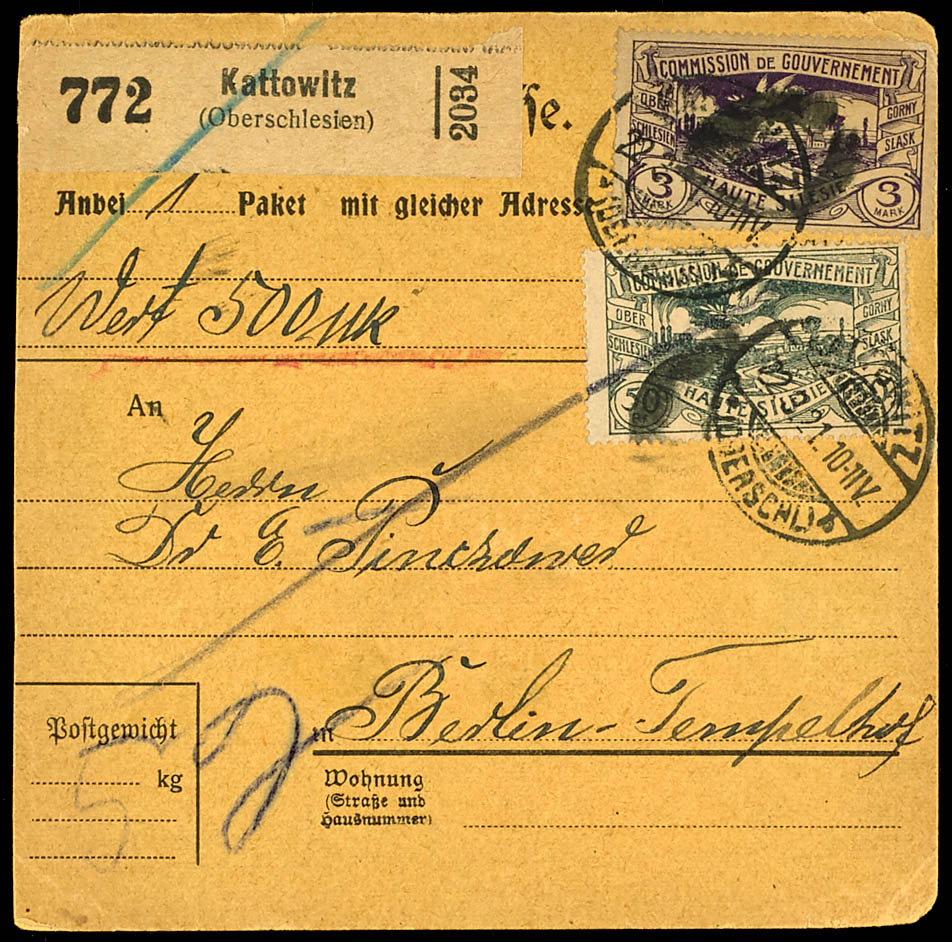 772
Kattowitz
(Oberschlesien)
2034
se.
COMMISSION DE GOUVERNEMENT
OBER SCHLESIEN
GORNY SLASK
HAUTE SILESIE
3 MARK
3 MARK
Anbei 1 Paket mit gleicher Adresse
Wert 500 Mk
COMMISSION DE GOUVERNEMENT
OBER SCHLESIEN
GORNY SLASK
HAUTE SILESIE
50
(OBERSCHL)
10-11V.
An
Herrn
Dr E. Pinczower
in Berlin-Tempelhof
Postgewicht
5 kg
Wohnung
(Straße und
Hausnummer)